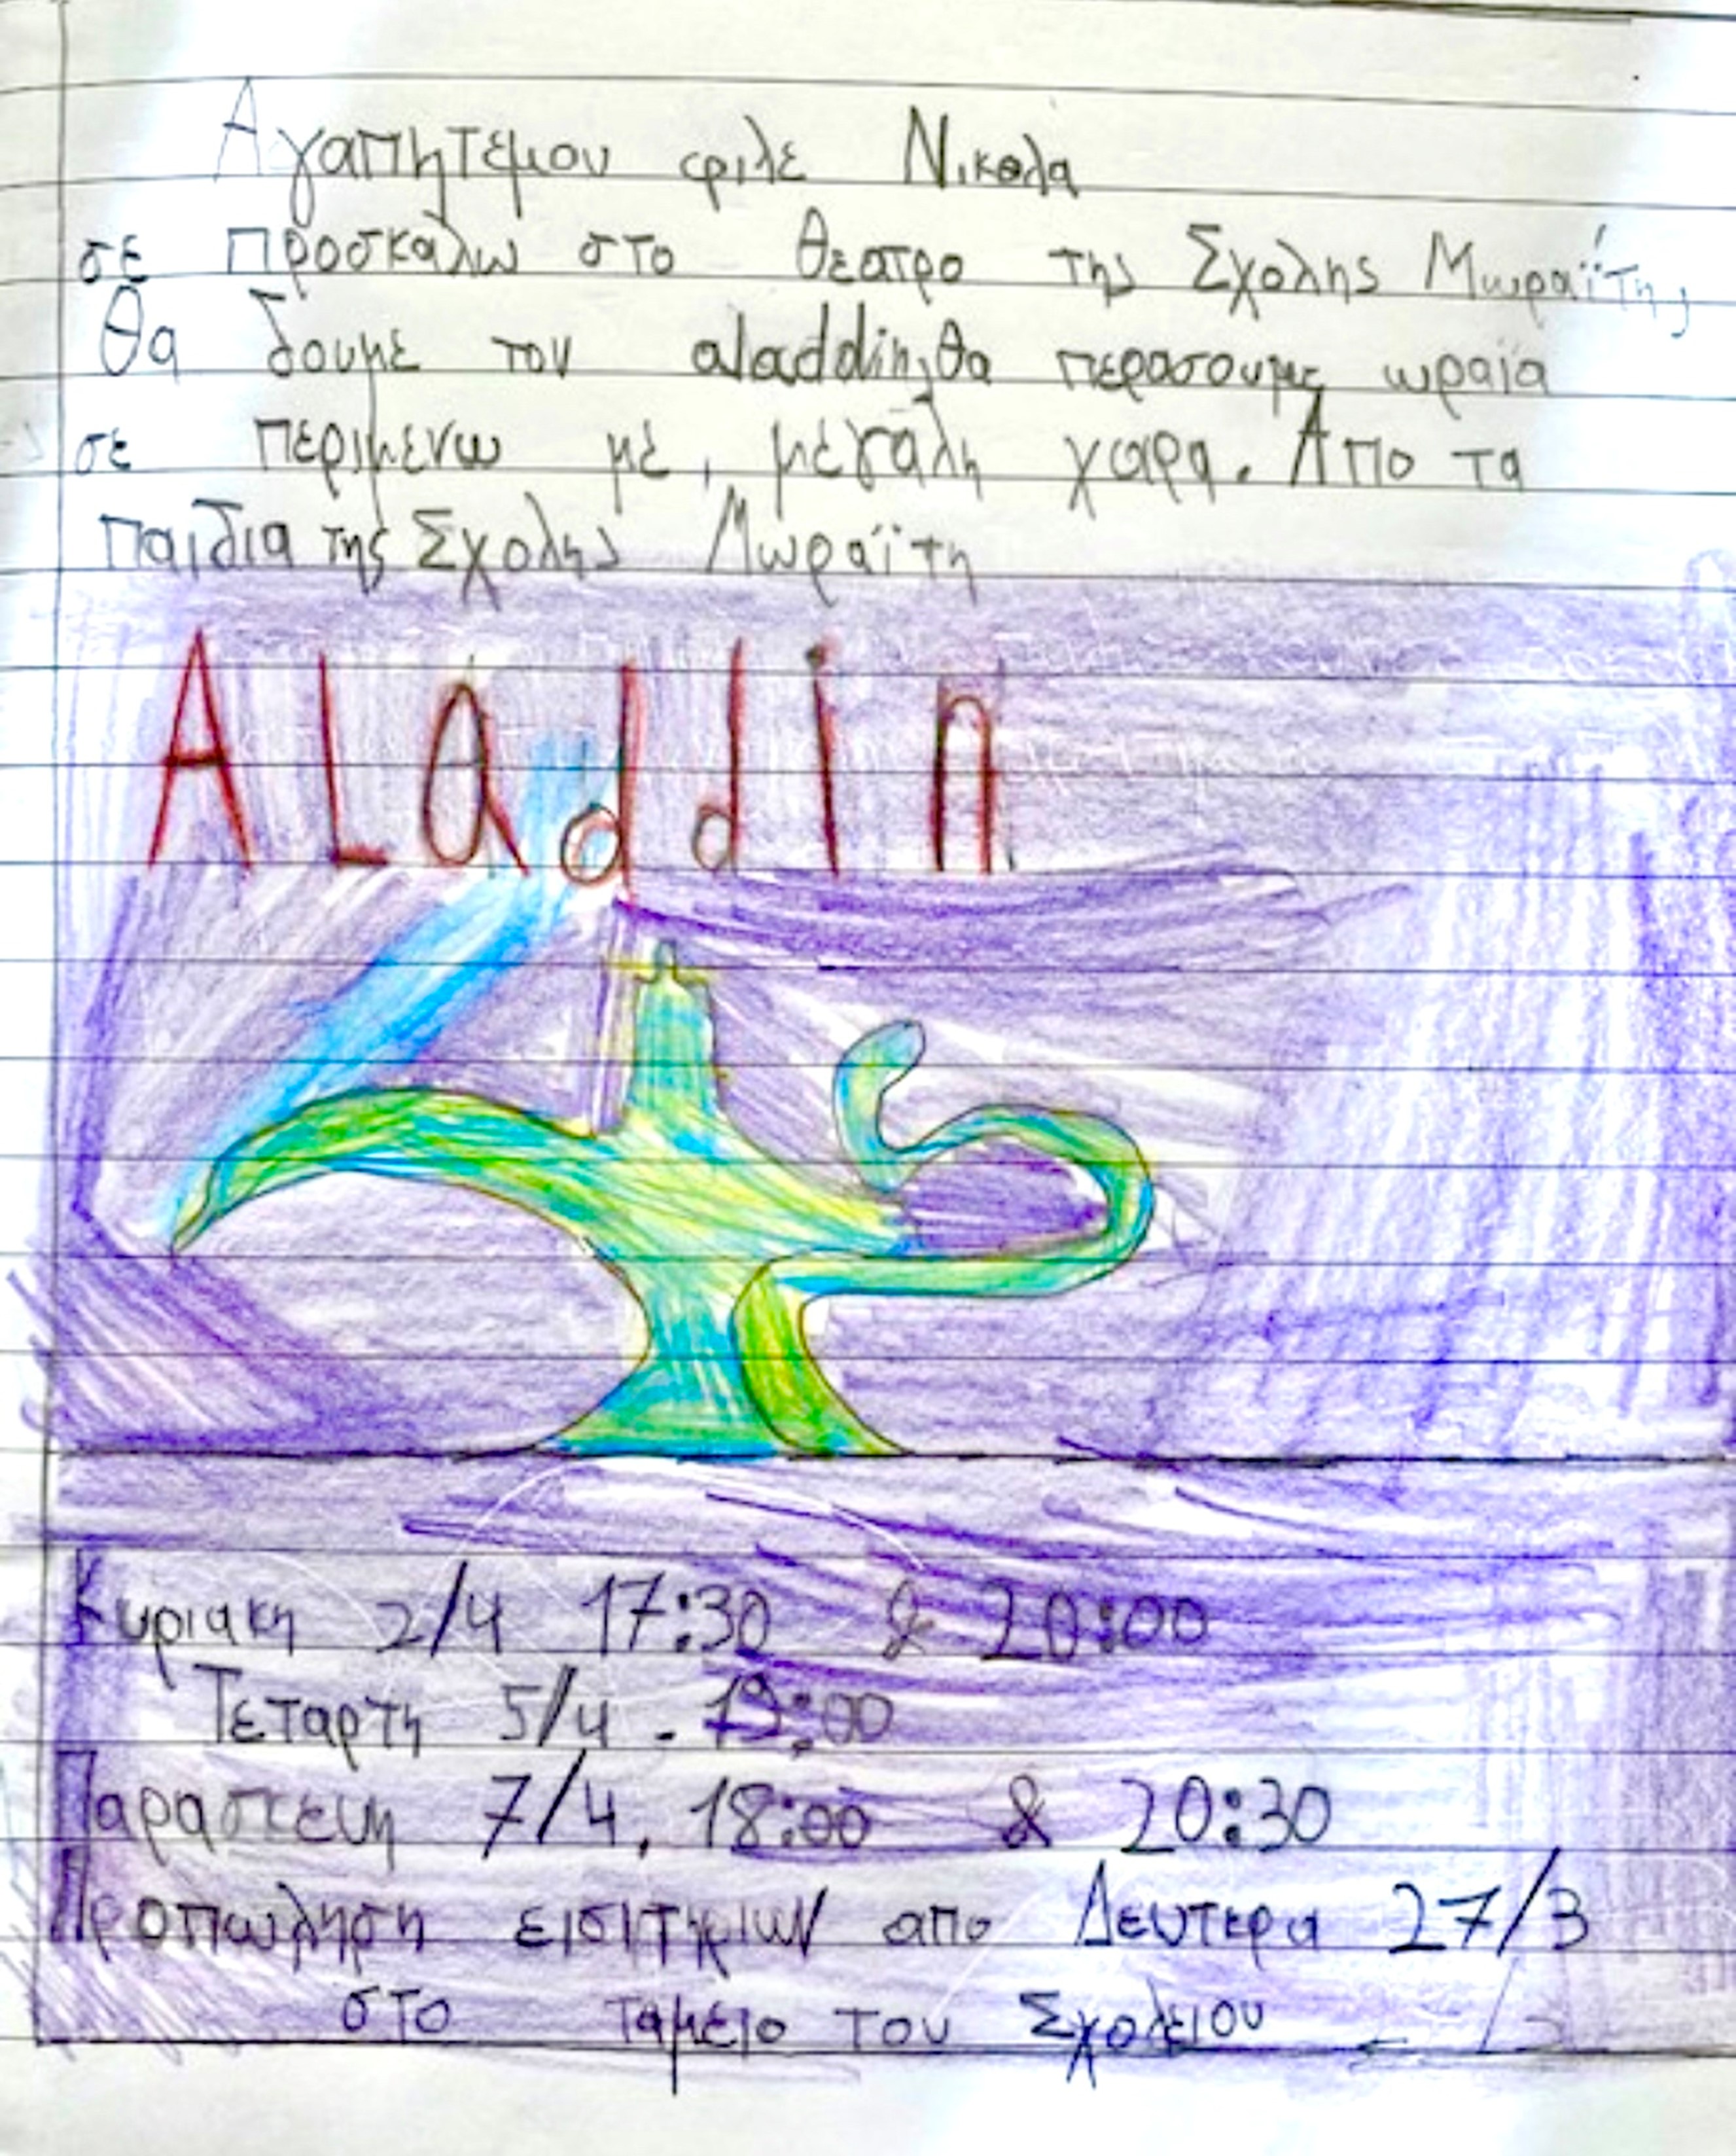 Αγαπητεμου φιλε Νικολα
σε προσκαλω στο θεατρο της Σχολης Μωραΐτη,
Θα δουμε τον aladdin,θα περασουμε ωραϊα
σε περιμενω μέ, μέγαλη χαρα. Απο τα
παιδια της Σχολης Μωραϊτη
ALaddin
Κυριακη 2/4 17:30 & 20:00
Τεταρτη 5/4 - 19:00
Παρασκευη 7/4, 18:00 & 20:30
Προπωληση εισιτηριων απο Δευτερα 27/3
στο ταμειο του Σχολειου